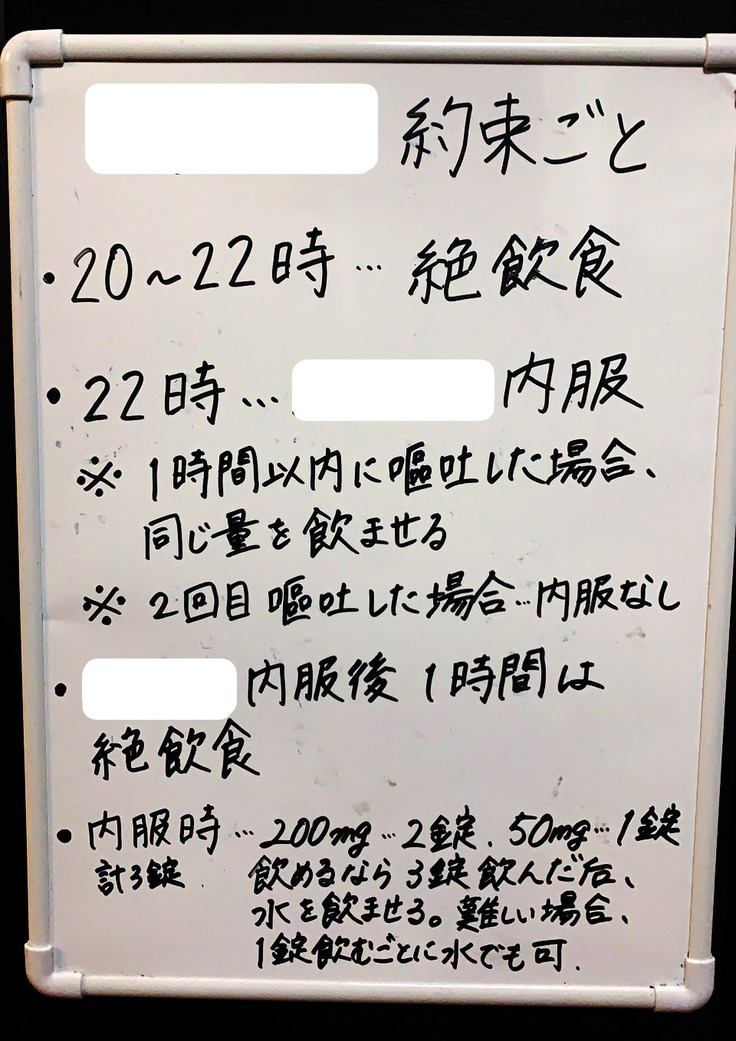 約束ごと
・20~22時… 絶飲食
・22時… 内服
※ 1時間以内に嘔吐した場合、
同じ量を飲ませる
※ 2回目嘔吐した場合…内服なし
・ 内服後 1時間は
絶飲食
・内服時…200mg…2錠、50mg…1錠
計3錠 飲めるなら3錠飲んだ后、
水を飲ませる。難しい場合、
1錠飲むごとに水でも可.